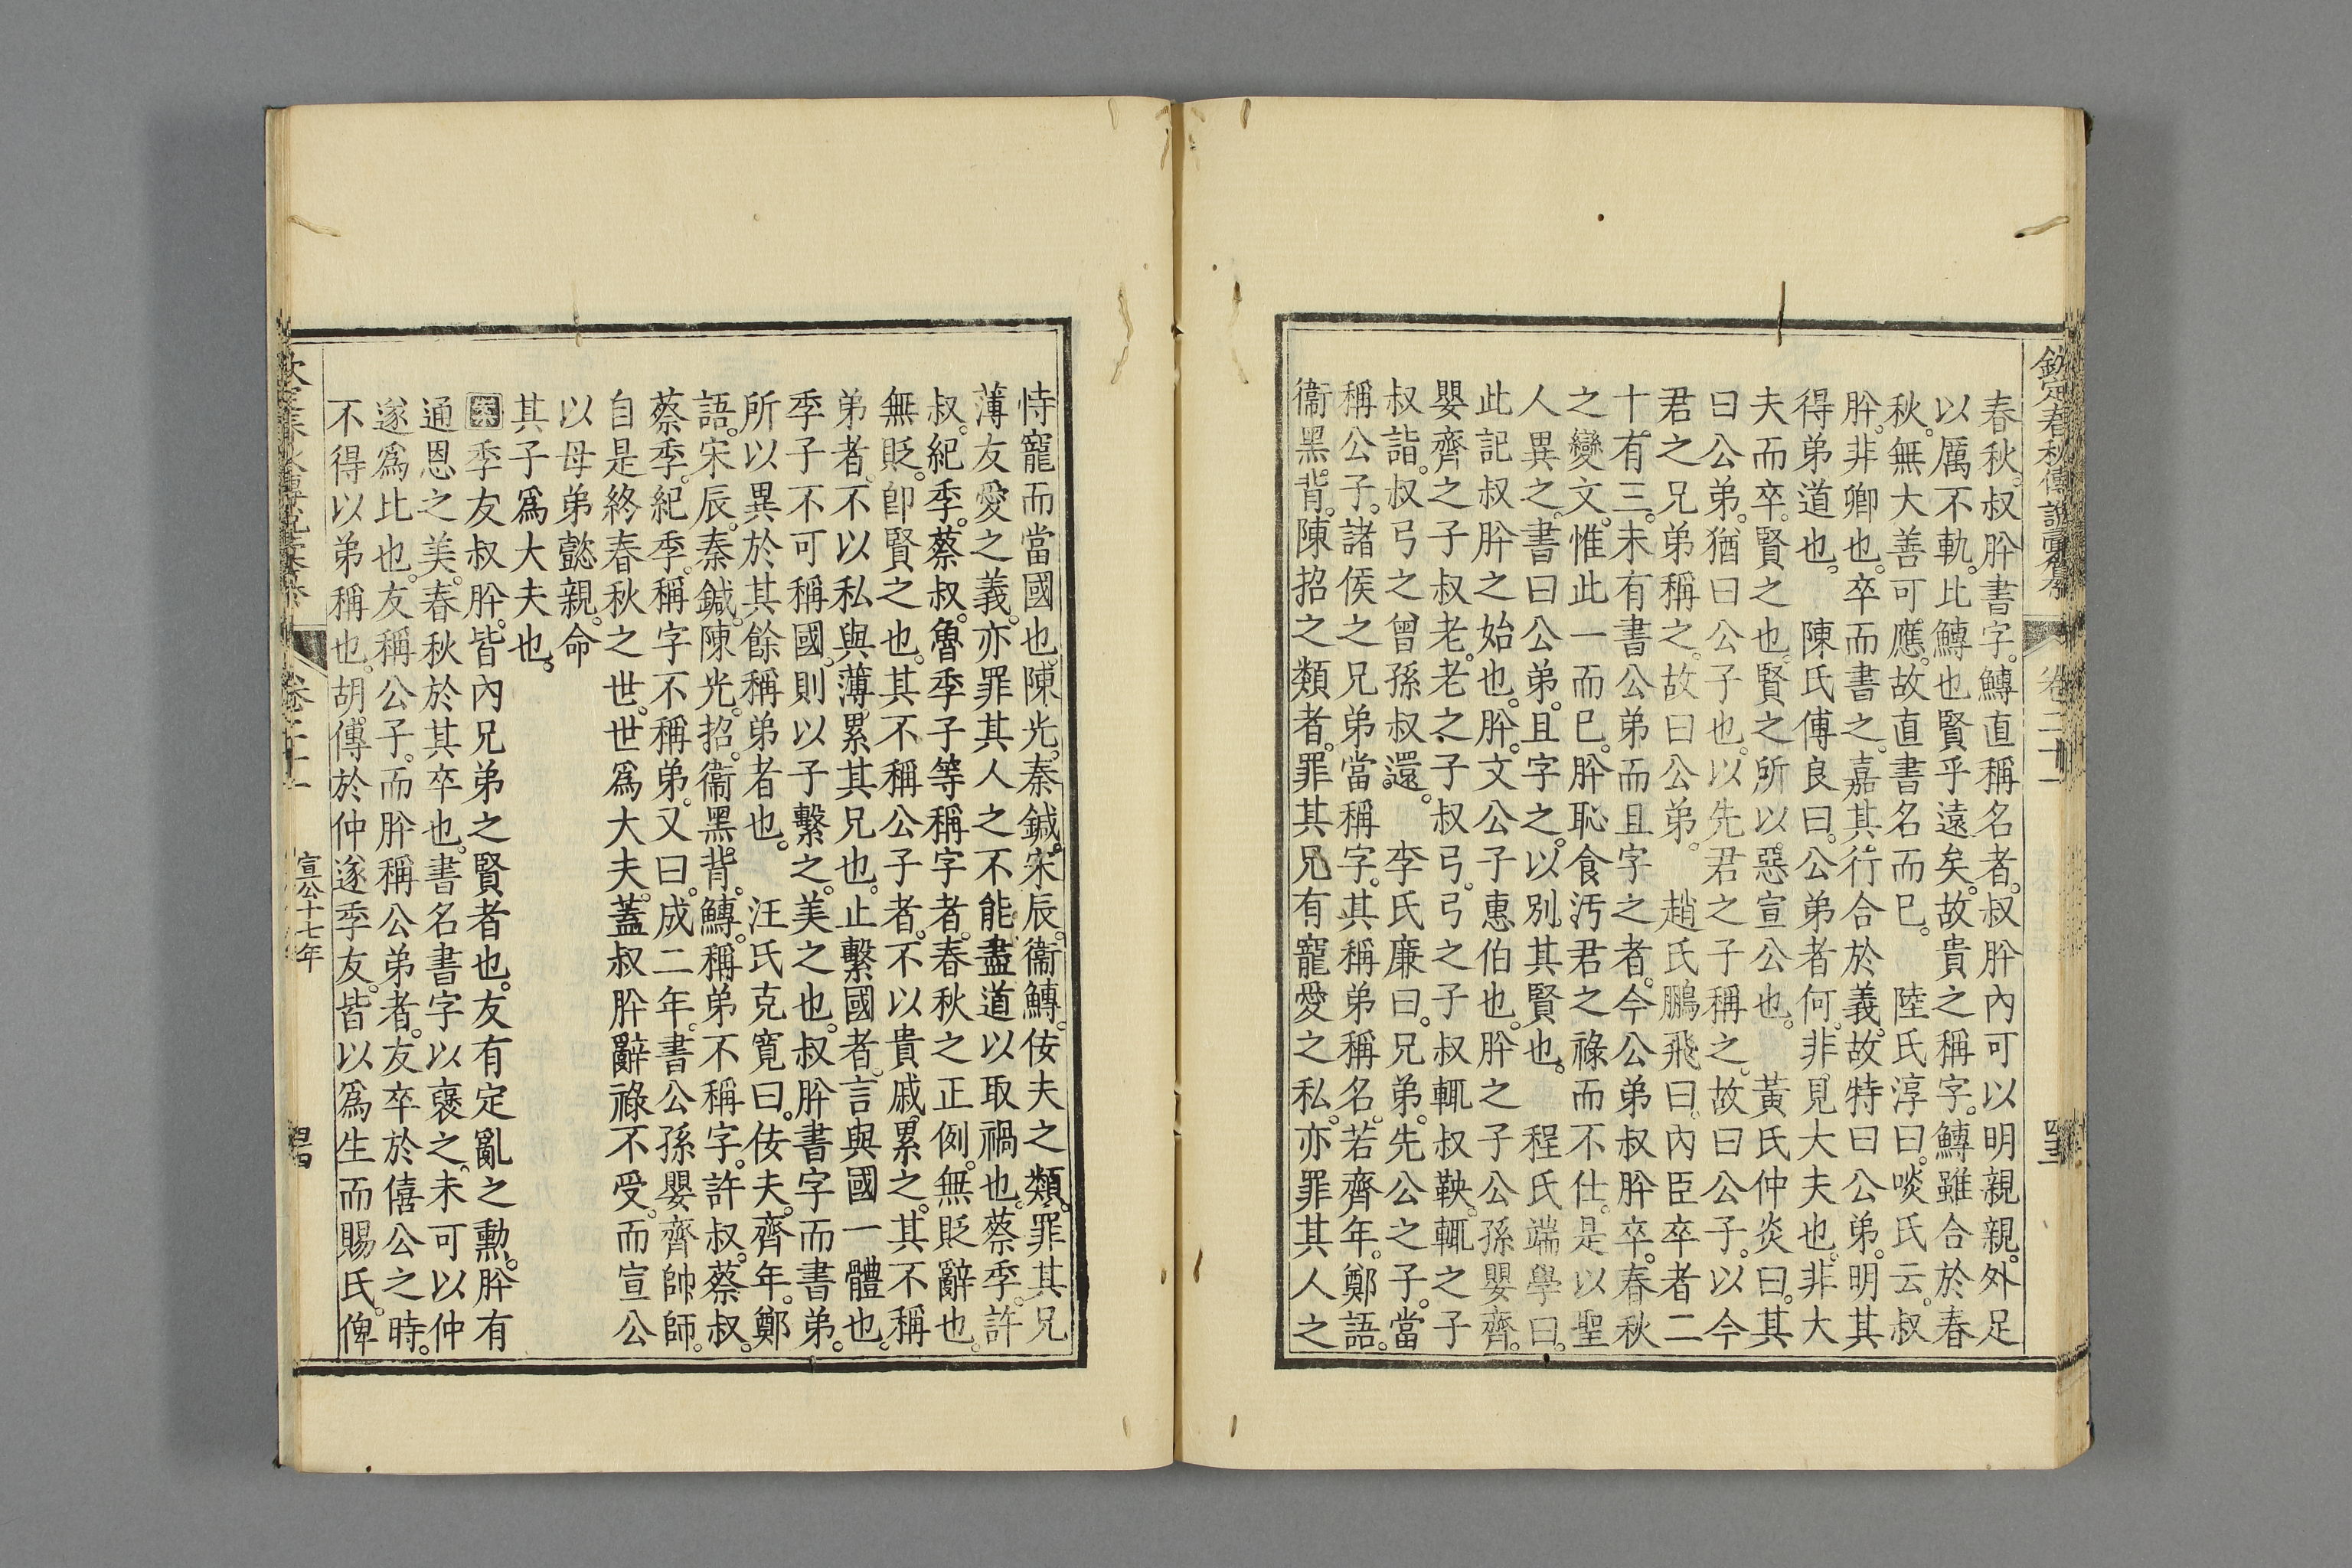 欽定春秋傳說彙纂 卷二十一
春秋。叔肸書字。鱄直稱名者。叔肸內可以明親親。外足
以厲不軌。比鱄也賢乎遠矣。故貴之稱字。鱄雖合於春
秋。無大善可應。故直書名而已。 陸氏淳曰。啖氏云。叔
肸。非卿也。卒而書之。嘉其行合於義。故特曰公弟。明其
得弟道也。 陳氏傅良曰。公弟者何。非見大夫也。非大
夫而卒。賢之也。賢之所以惡宣公也。 黃氏仲炎曰。其
曰公弟。猶曰公子也。以先君之子稱之。故曰公子。以今
君之兄弟稱之。故曰公弟。 趙氏鵬飛曰。內臣卒者二
十有三。未有書公弟而且字之者。今公弟叔肸卒。春秋
之變文。惟此一而已。肸恥食汚君之祿而不仕。是以聖
人異之。書曰公弟。且字之。以別其賢也。 程氏端學曰。
此記叔肸之始也。肸。文公子惠伯也。肸之子公孫嬰齊。
嬰齊之子叔老。老之子叔弓。弓之子叔輒叔鞅。輒之子
叔詣。叔弓之曾孫叔還。 李氏廉曰。兄弟。先公之子。當
稱公子。諸侯之兄弟。當稱字。其稱弟稱名。若齊年。鄭語。
衞黑背。陳招之類者。罪其兄有寵愛之私。亦罪其人之
恃寵而當國也。陳光。秦鍼。宋辰。衞鱄。佞夫之類。罪其兄
薄友愛之義。亦罪其人之不能盡道以取禍也。蔡季。許
叔。紀季。蔡叔。魯季子等稱字者。春秋之正例。無貶辭也。
無貶。卽賢之也。其不稱公子者。不以貴戚累之。其不稱
弟者。不以私與薄。累其兄也。止繫國者。言與國一體也。
季子不可稱國。則以子繫之。美之也。叔肸書字而書弟。
所以異於其餘稱弟者也。 汪氏克寬曰。佞夫。齊年。鄭
語。宋辰。秦鍼。陳光。招。衞黑背。鱄。稱弟不稱字。許叔。蔡叔。
蔡季。紀季。稱字不稱弟。又曰。成二年。書公孫嬰齊帥師。
自是終春秋之世。世爲大夫。蓋叔肸辭祿不受。而宣公
以母弟懿親。命
其子爲大夫也。
案季友叔肸。皆內兄弟之賢者也。友有定亂之勳。肸有
通恩之美。春秋於其卒也。書名書字以襃之。未可以仲
遂爲比也。友稱公子。而肸稱公弟者。友卒於僖公之時。
不得以弟稱也。胡傳於仲遂季友。皆以爲生而賜氏。俾
宣公十七年